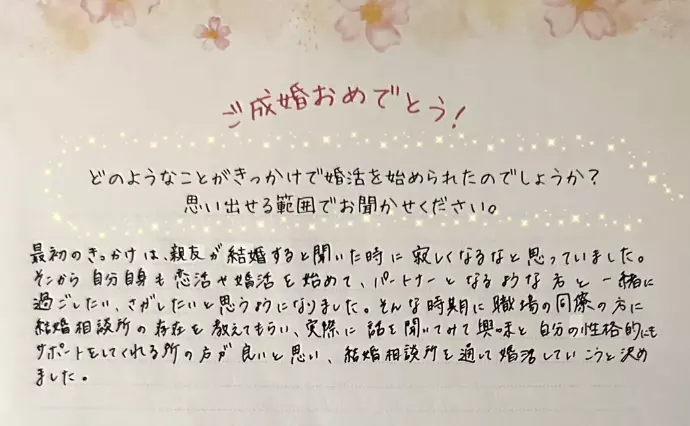 ご成婚おめでとう!
どのようなことがきっかけで婚活を始められたのでしょうか?
思い出せる範囲でお聞かせください。
最初のきっかけは、親友が結婚すると聞いた時に寂しくなるなと思っていました。
そこから自分自身も恋活や婚活を始めて、パートナーとなるような方と一緒に
過ごしたい、さがしたいと思うようになりました。そんな時期に職場の同僚の方に
結婚相談所の存在を教えてもらい、実際に話を聞いてみて興味と自分の性格的にも
サポートをしてくれる所の方が良いと思い、結婚相談所を通して婚活していこうと決め
ました。